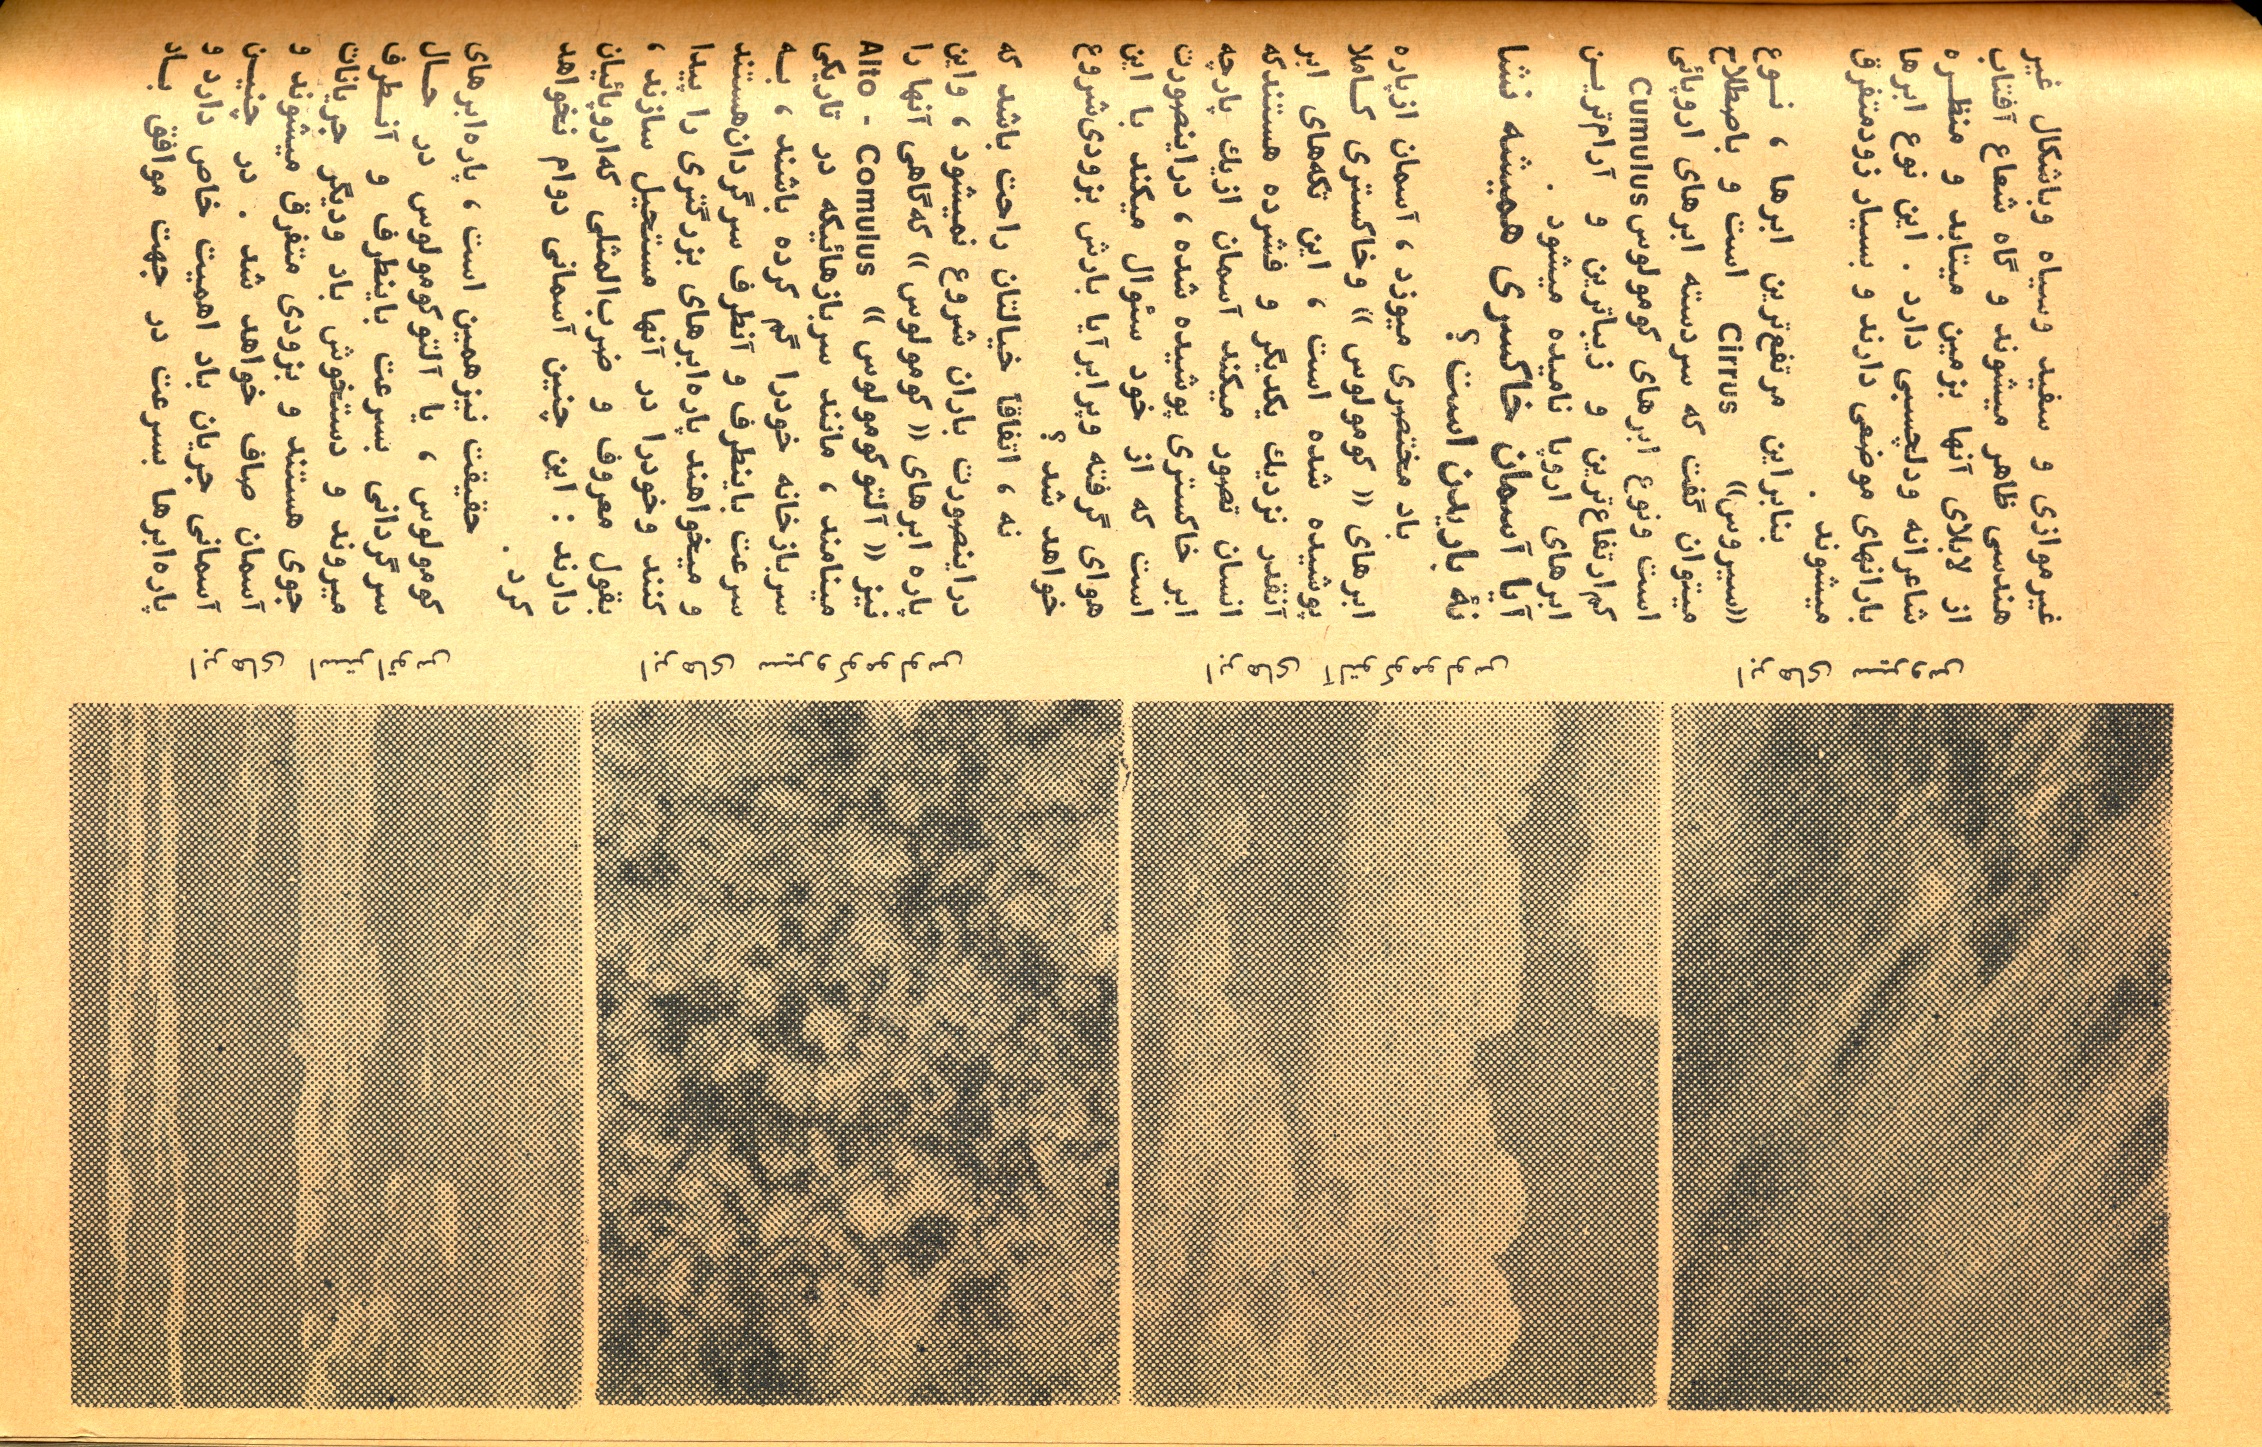 غیرموازی و سفید وسیاه وباشکال غیر
هندسی ظاهر میشوند و گاه شعاع آفتاب
از لابلای آنها بزمین میتابد و منظره
شاعرانه ودلچسبی دارد . این نوع ابرها
بارانهای موضعی دارند و بسیار زودمتفرق
میشوند .
بنابراین مرتفع‌ترین ابرها ، نوع
«سیروس» Cirrus است و باصطلاح
میتوان گفت که سردسته ابرهای اروپائی
است ونوع ابرهای کومولوس Cumulus
کم‌ارتفاع‌ترین و زیباترین و آرام‌ترین
ابرهای اروپا نامیده میشود .
آیا آسمان خاکستری همیشه نشا
نهٔ باریدن است ؟
باد مختصری میوزد ، آسمان ازپاره
ابرهای «کومولوس» وخاکستری کاملا
پوشیده شده است ، این تکه‌های ابر
آنقدر نزدیك یکدیگر و فشرده هستندکه
انسان تصور میکند آسمان ازیك پارچه
ابر خاکستری پوشیده شده ، دراینصورت
است که از خود سئوال میکند با این
هوای گرفته وپرابرآیا بارش بزودی‌شروع
خواهد شد ؟
نه ، اتفاقاً خیالتان راحت باشد که
دراینصورت باران شروع نمیشود ، واین
پاره ابرهای «کومولوس» که‌گاهی آنها را
نیز «آلتوکومولوس» Alto - Comulus
مینامند ، مانند سربازهائیکه در تاریکی
سربازخانه خودرا گم کرده باشند ، به
سرعت باینطرف و آنطرف سرگردان‌هستند
و میخواهند پاره‌ابرهای بزرگتری را پیدا
کنند وخودرا در آنها مستحیل سازند ،
بقول معروف و ضرب‌المثلی که‌اروپائیان
دارند : این چنین آسمانی دوام نخواهد
کرد .
حقیقت نیزهمین است ، پاره‌ابرهای
کومولوس ، یا آلتوکومولوس در حال
سرگردانی بسرعت باینطرف و آنطرف
میروند و دستخوش باد ودیگر جریانات
جوی هستند و بزودی متفرق میشوند و
آسمان صاف خواهد شد . در چنین
آسمانی جریان باد اهمیت خاص دارد و
پاره‌ابرها بسرعت در جهت موافق باد
ابرهای سیروس
ابرهای آلتوکومولوس
ابرهای سیروکومولوس
ابرهای استراتوس